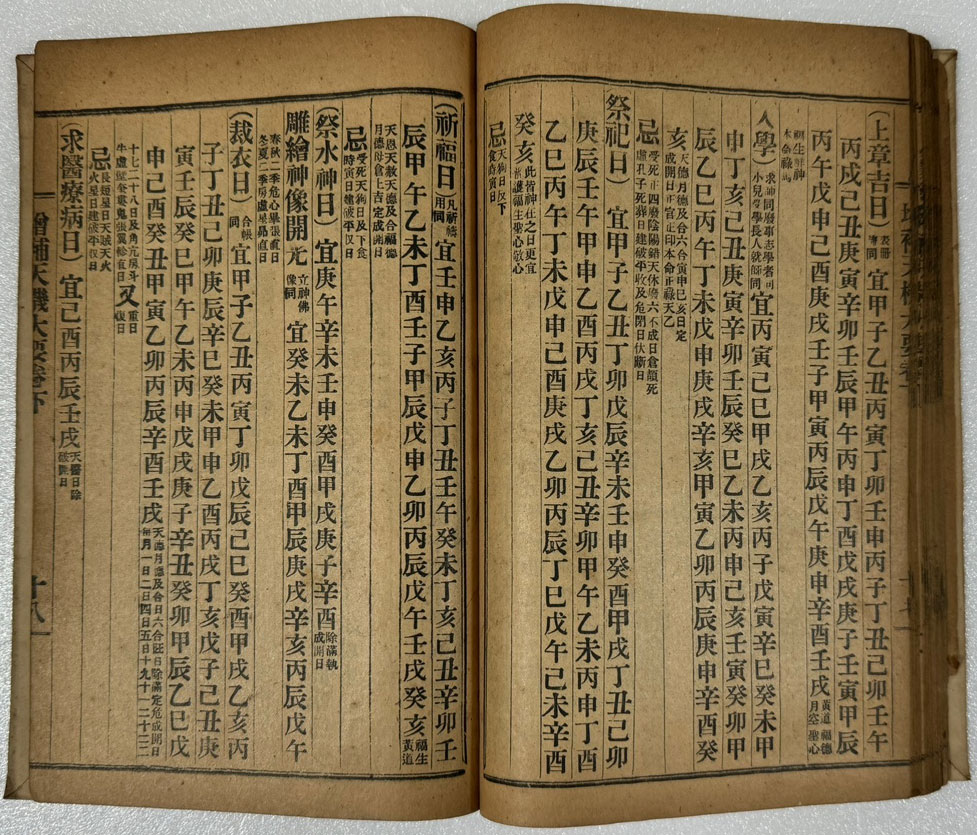 (上章吉日) 表冊專同 宜甲子乙丑丙寅丁卯壬申丙子丁丑己卯壬午
丙戌己丑庚寅辛卯壬辰甲午丙申丁酉戊戌庚子壬寅甲辰
丙午戊申己酉庚戌壬子甲寅丙辰戊午庚申辛酉壬戌 黃道福德月空聖心
入學) 求神同廢事志學者同小兒及學長人就師同 宜丙寅己巳甲戌乙亥丙子戊寅辛巳癸未甲
申丁亥庚寅辛卯壬辰癸巳乙未丙申己亥壬寅癸卯甲
辰乙巳丙午丁未戊申庚戌辛亥甲寅乙卯丙辰庚申辛酉癸
亥 天德月德及合六合寅申巳亥日定成開日正宜正印本命正祿天乙
忌 受死正四廢陰陽錯天休廢六不成日倉頡死虛孔子死葬日建破平收及危閉日伏斷日
祭祀日) 宜甲子乙丑丁卯戊辰辛未壬申癸酉甲戌丁丑己卯
庚辰壬午甲申乙酉丙戌丁亥己丑辛卯甲午乙未丙申丁酉
乙巳丙午丁未戊申己酉庚戌乙卯丙辰丁巳戊午己未辛酉
癸亥 此皆神在之日更宜普護福生聖心敬心
忌 天狗日及下食時寅日
(祈福日) 凡祈禱用同 宜壬申乙亥丙子丁丑壬午癸未丁亥己丑辛卯壬
辰甲午乙未丁酉壬子甲辰戊申乙卯丙辰戊午壬戌癸亥 福生黃道
天恩天赦天德及合福德月德母倉上吉定成開日
忌 受死天狗日及下食時寅日建破平收日
(祭水神日) 宜庚午辛未壬申癸酉甲戌庚子辛酉 除滿執成開日
雕繪神像開光 立神佛像同 宜癸未乙未丁酉甲辰庚戌辛亥丙辰戊午
春秋二季危心畢張直日冬夏二季房虛星昴直日
(裁衣日) 合帳同 宜甲子乙丑丙寅丁卯戊辰己巳癸酉甲戌乙亥丙
子丁丑己卯庚辰辛巳癸未甲申乙酉丙戌丁亥戊子己丑庚
寅壬辰癸巳甲午乙未丙申戊戌庚子辛丑癸卯甲辰乙巳戊
申己酉癸丑甲寅乙卯丙辰辛酉壬戌
十七二十八日及角亢房斗牛虛壁奎婁鬼張翼軫直日 又 重日復日
忌 長短星日天賊天火火星日建破平收日
(求醫療病日) 宜己酉丙辰壬戌 天醫日除破開日
增補天機大要卷下
十八